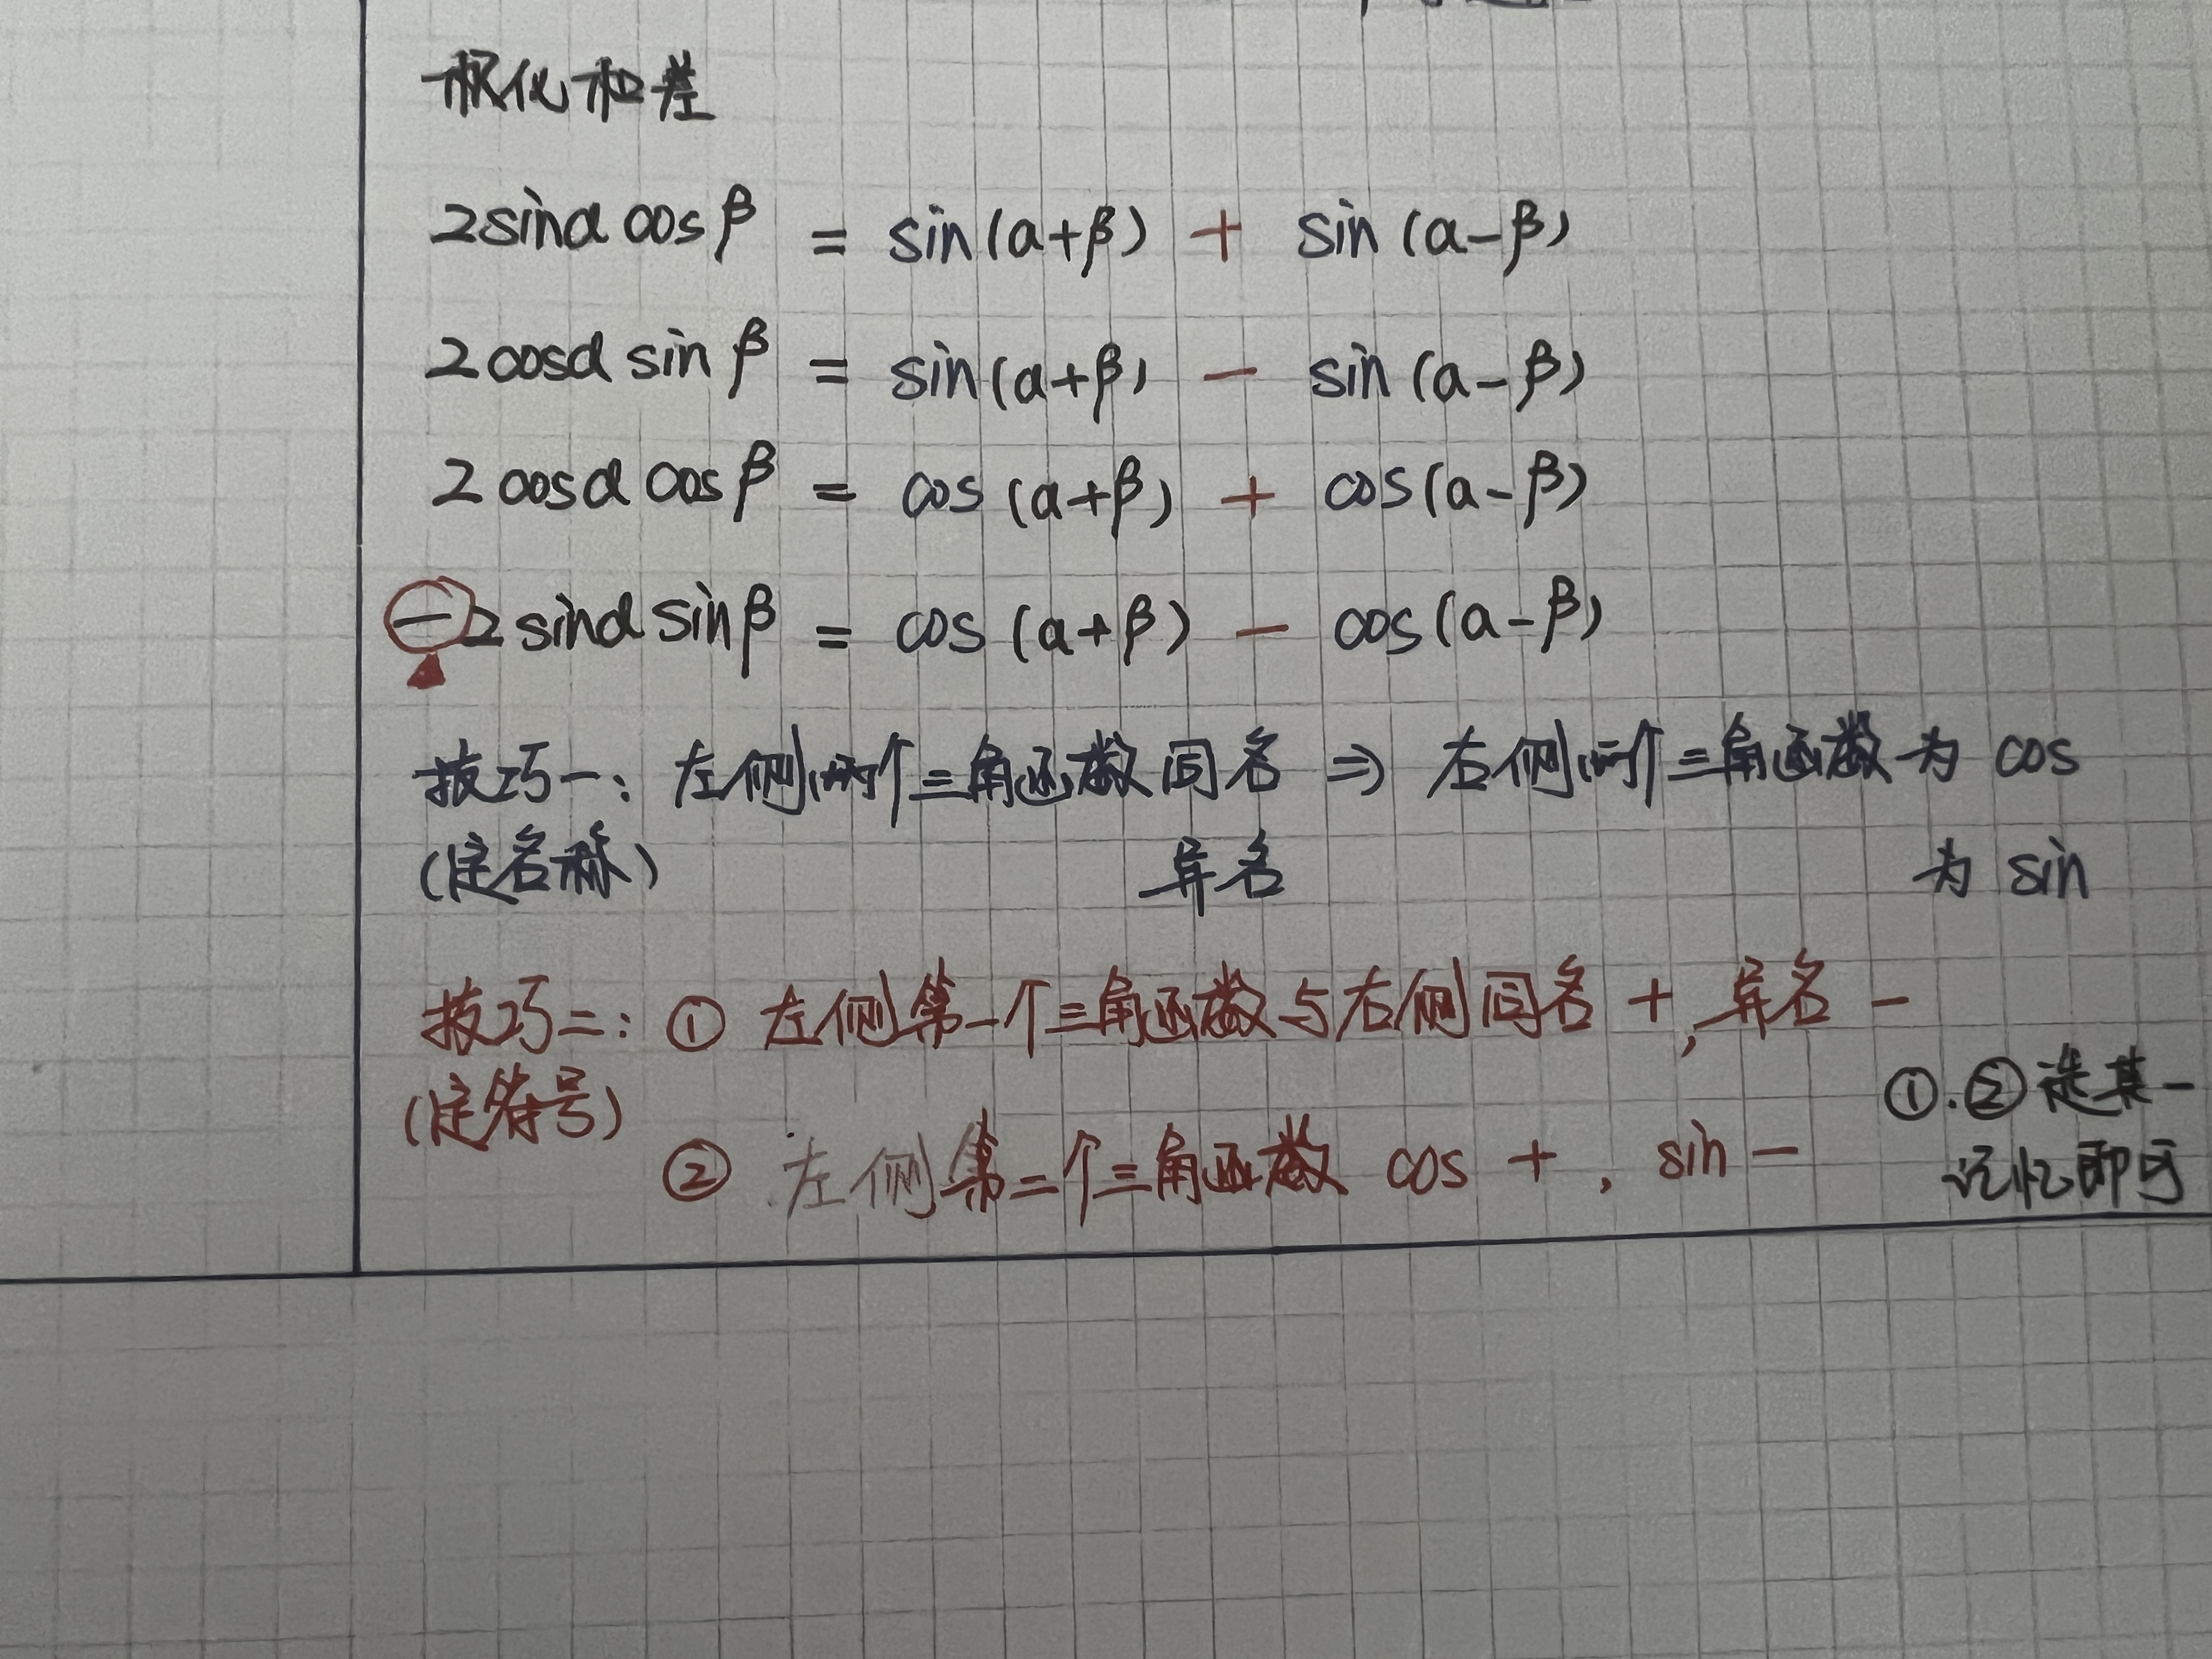 积化和差
2sinα cosβ = sin(α+β) + sin(α-β)
2cosα sinβ = sin(α+β) - sin(α-β)
2cosα cosβ = cos(α+β) + cos(α-β)
-2sinα sinβ = cos(α+β) - cos(α-β)
技巧一: 左侧两个三角函数同名 ⇒ 右侧两个三角函数为 cos
(定名称) 异名 为 sin
技巧二: ① 左侧第一个三角函数与右侧同名 +, 异名 -
(定符号)
② 左侧第二个三角函数 cos +, sin -
①.②选其一
记忆即可